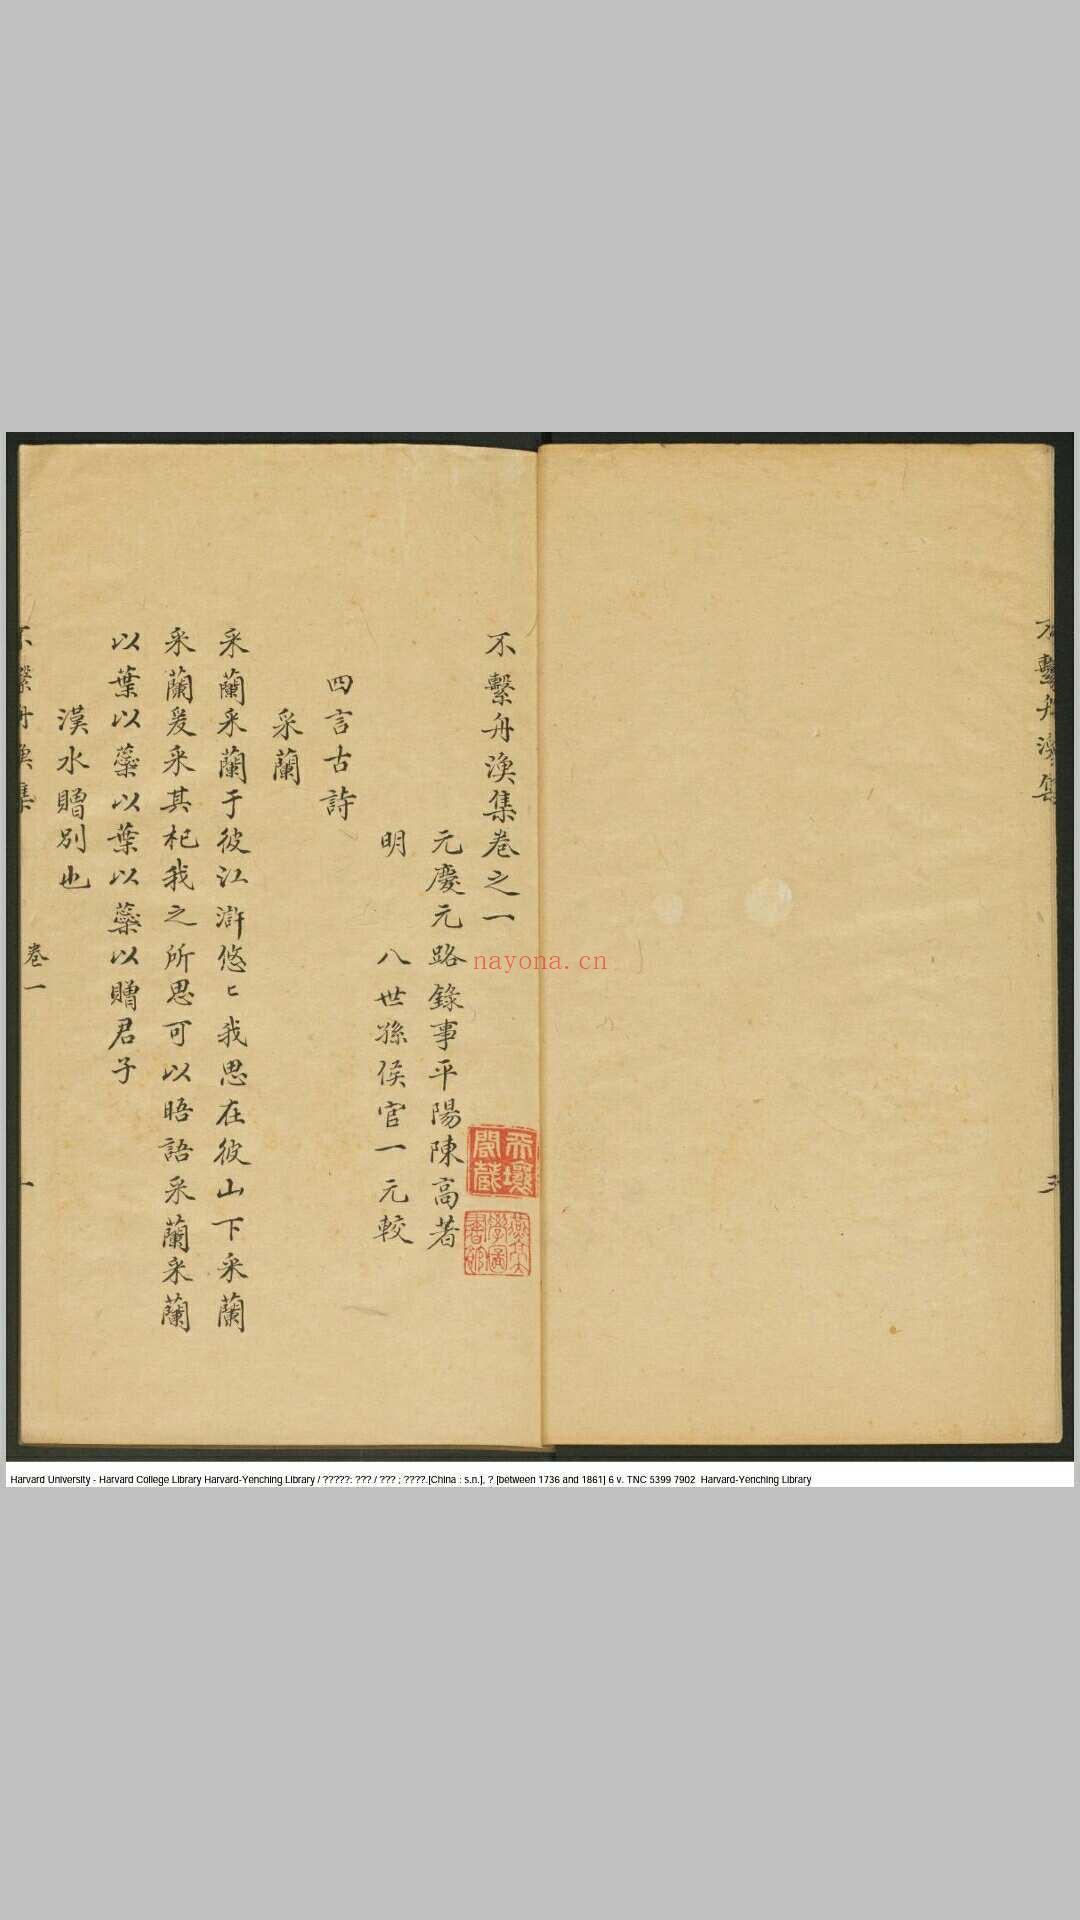 不繫舟漁集卷之一
元慶元路錄事平陽陳高著
明 八世孫侯官一元較
四言古詩
采蘭
采蘭采蘭于彼江滸悠〻我思在彼山下采蘭
采蘭爰采其杞我之所思可以晤語采蘭采蘭
以葉以蘂以葉以蘂以贈君子
漢水贈別也
不繫舟漁集
卷一
一
不繫舟漁集
三
nayona.cn
Harvard University - Harvard College Library Harvard-Yenching Library / ?????: ??? / ??? ; ????.[China : s.n.], ? [between 1736 and 1861] 6 v. TNC 5399 7902 Harvard-Yenching Library